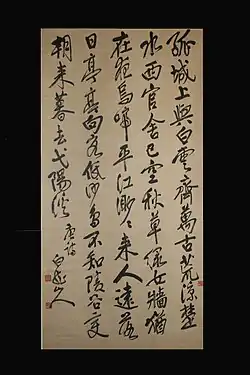 孤城上與白雲齊萬古荒涼楚
水西官舍已空秋草綠女牆猶
在夜烏啼平江渺渺来人遠落
日亭亭向客低沙鳥不知陵谷變
朝来暮去弋陽溪 唐詩 山人